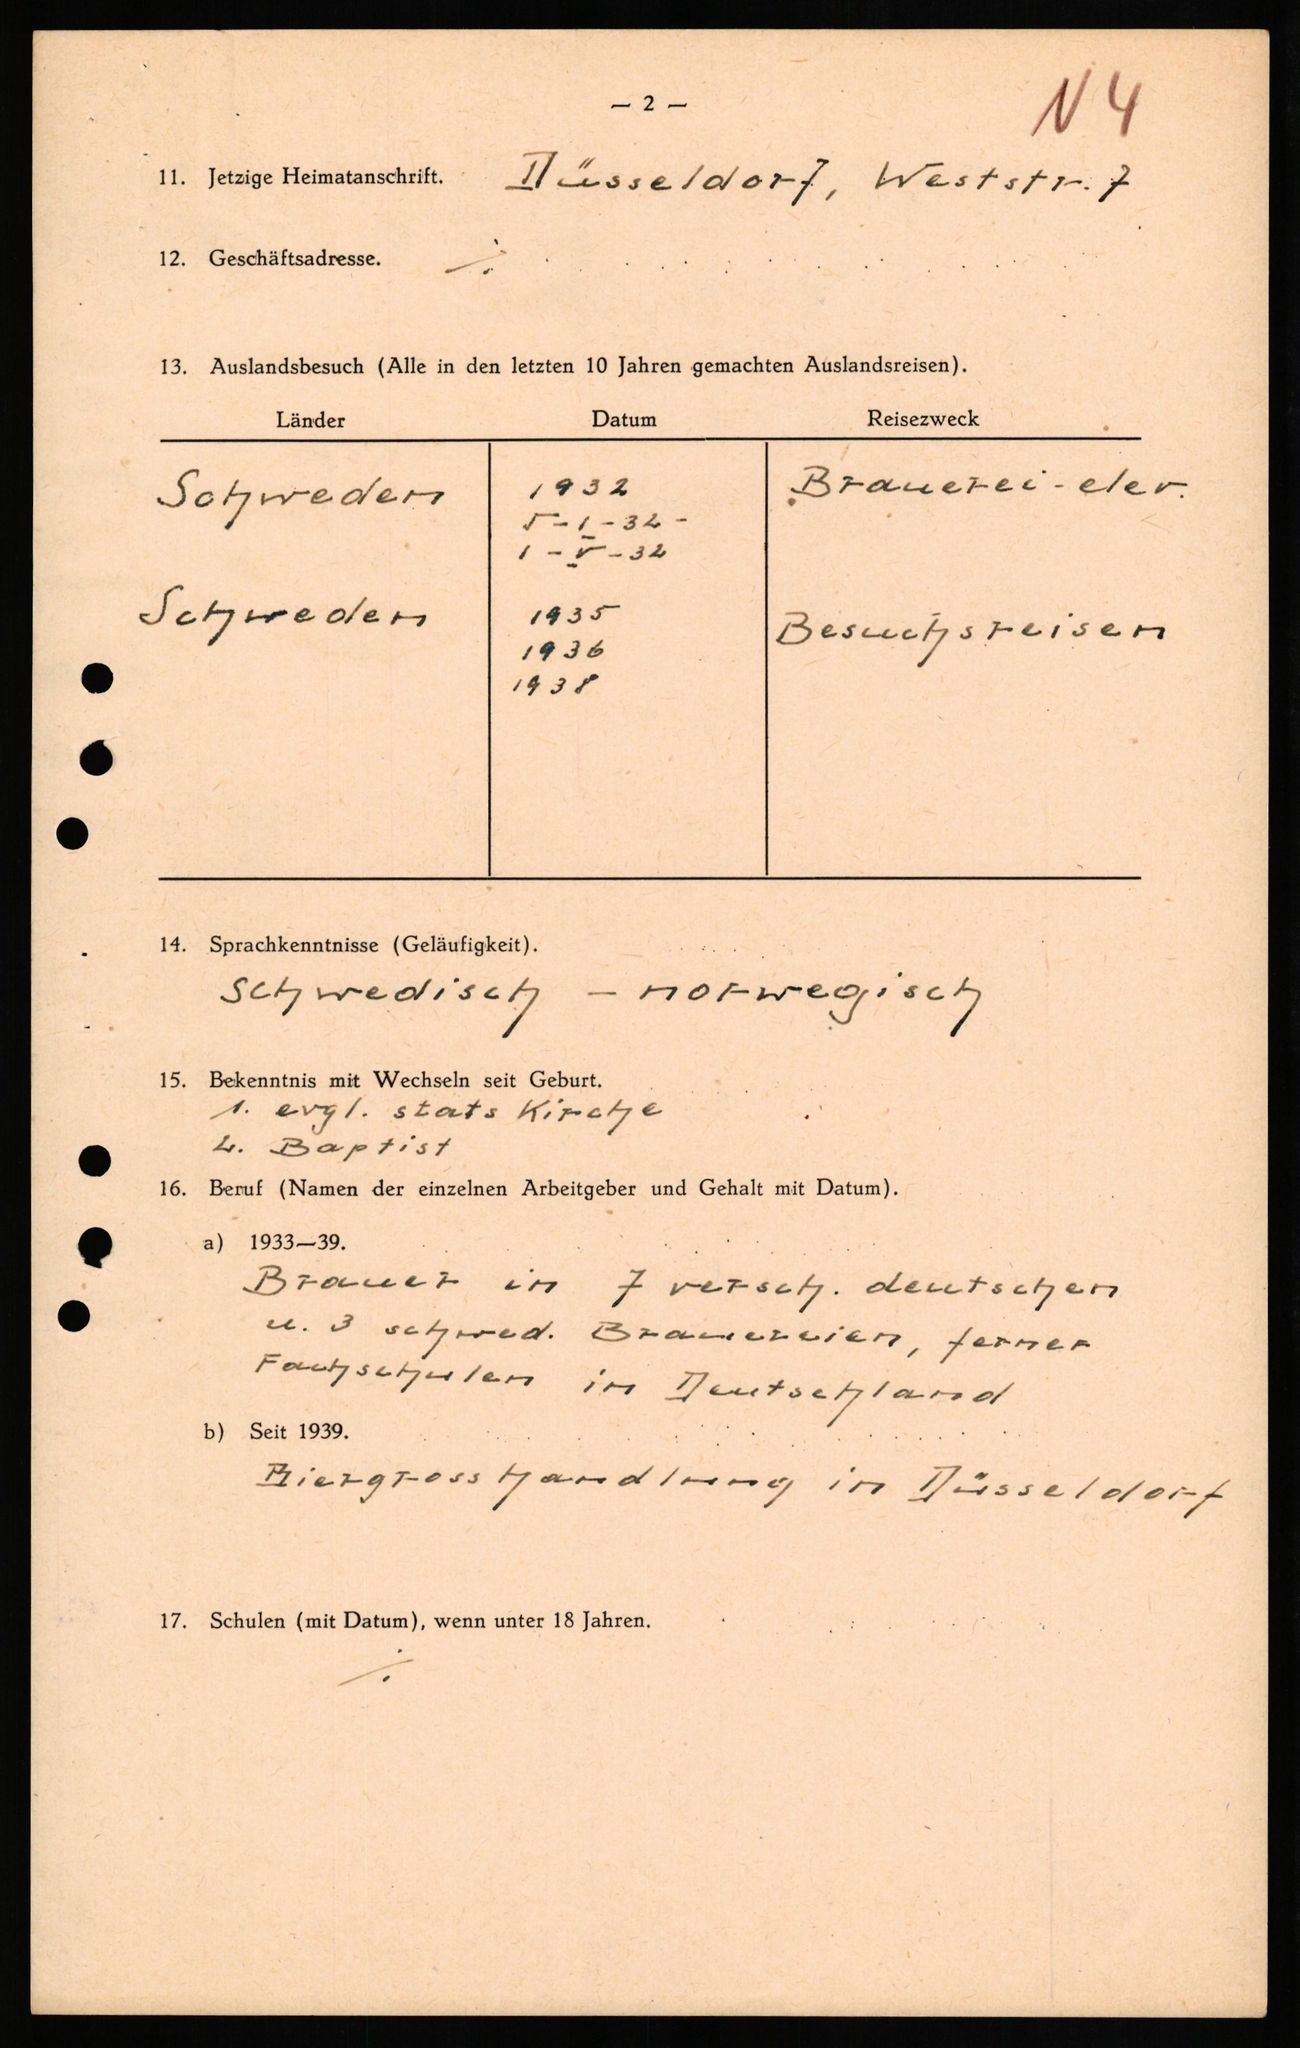 — 2 —
N 4
11. Jetzige Heimatanschrift. Düsseldorf, Weststr. 7
12. Geschäftsadresse. ·/.
13. Auslandsbesuch (Alle in den letzten 10 Jahren gemachten Auslandsreisen).
Länder Datum Reisezweck
Schweden 1932 Brauerei-elev.
5-I-32-
1-V-32
Schweden 1935 Besuchsreisen
1936
1938
14. Sprachkenntnisse (Geläufigkeit).
Schwedisch – norwegisch
15. Bekenntnis mit Wechseln seit Geburt.
1. evgl. stats Kirche
2. Baptist
16. Beruf (Namen der einzelnen Arbeitgeber und Gehalt mit Datum).
a) 1933—39.
Brauer in 7 versch. deutschen
u. 3 schwed. Brauereien, ferner
Fachschulen in Deutschland
b) Seit 1939.
Biergrosshandlung in Düsseldorf
17. Schulen (mit Datum), wenn unter 18 Jahren.
·/.